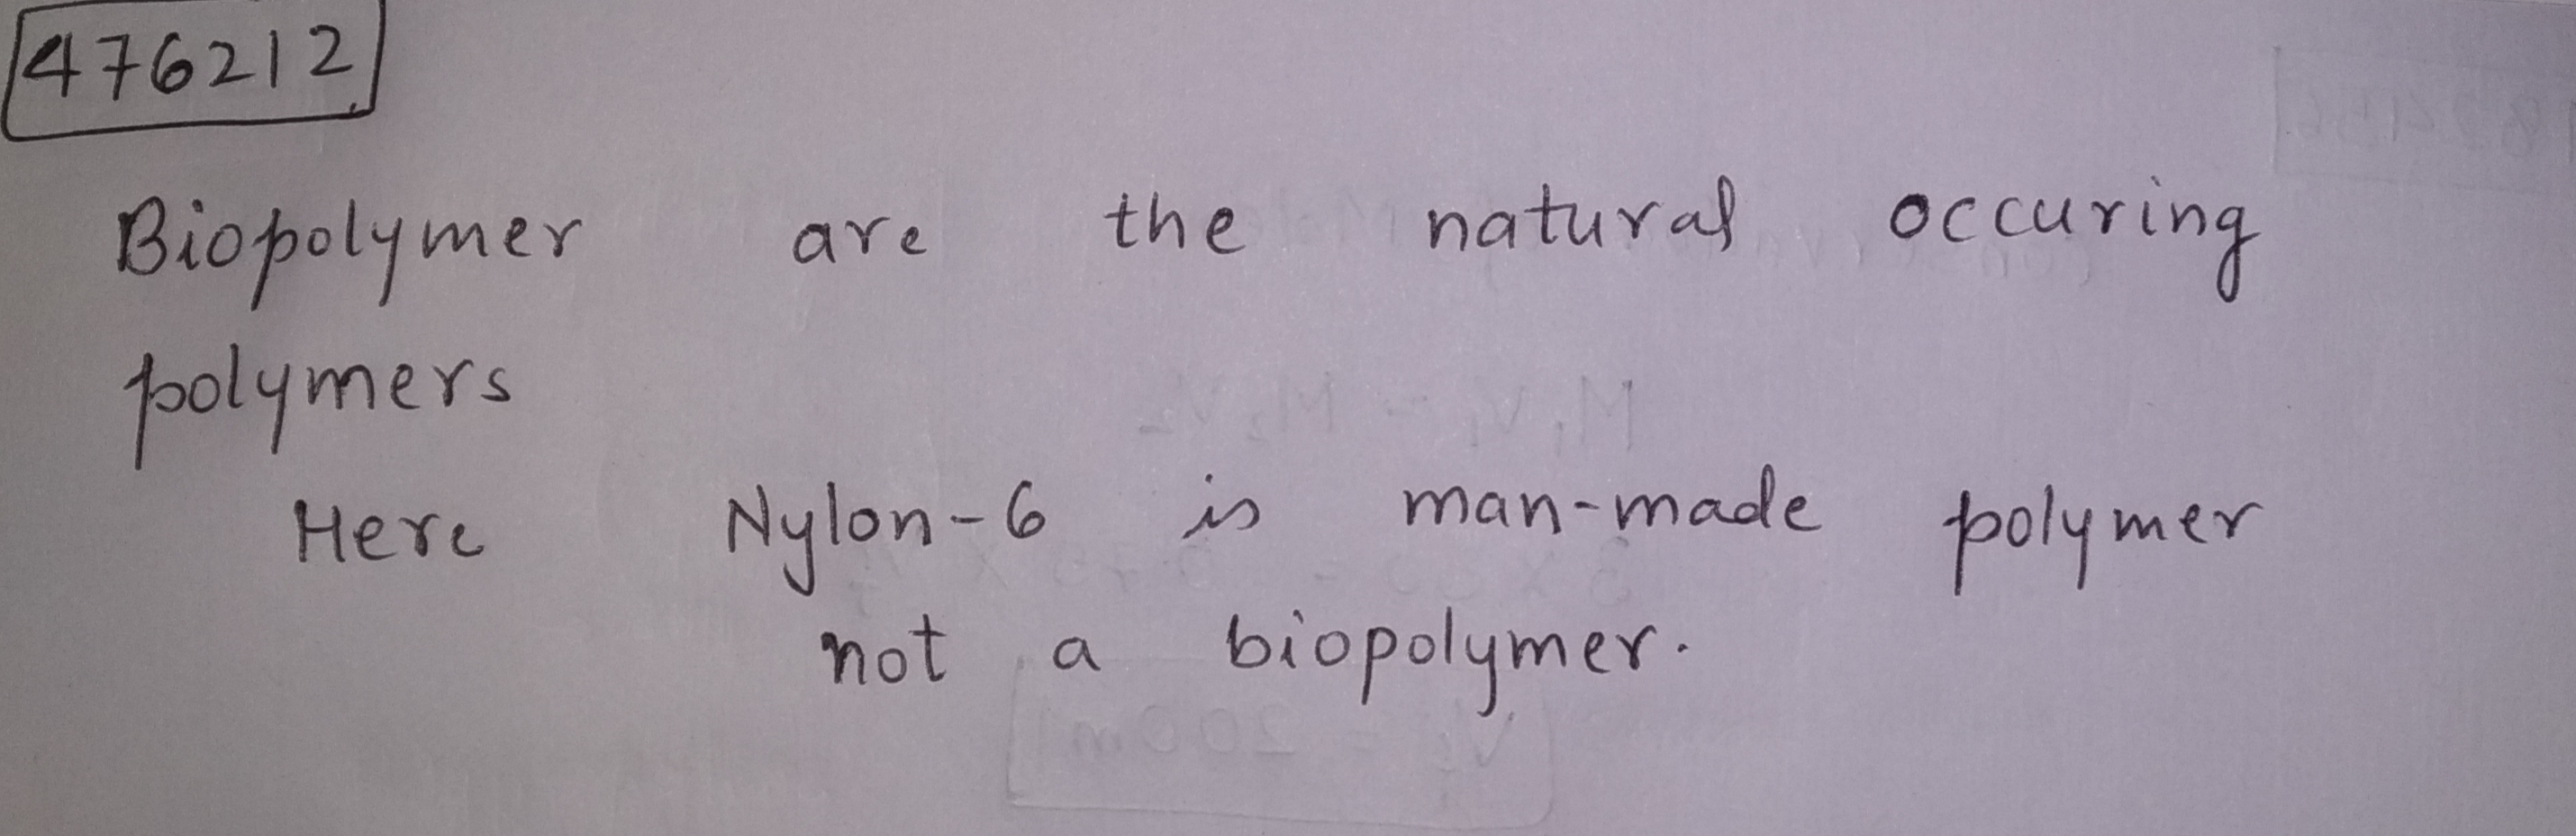 476212
Biopolymer are the natural occuring
polymers
Here Nylon-6 is man-made polymer
not a biopolymer.